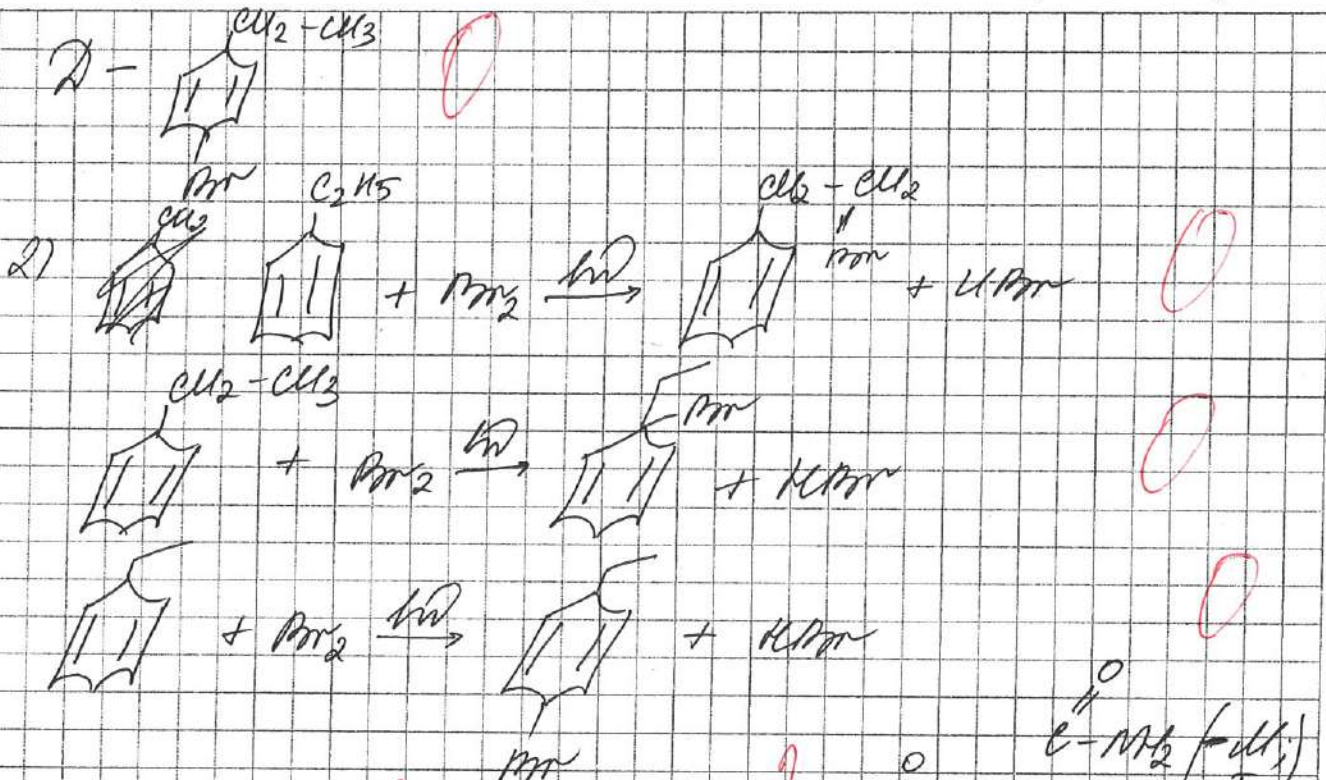 CH2-CH3
D -
0
Br
2) CH2 C2H5 + Br2 hν → CH2-CH2 Br + HBr
0
CH2-CH3 + Br2 hν → Br + HBr
0
+ Br2 hν → + HBr
0
Br
O
C-NH2 (-M;)
O